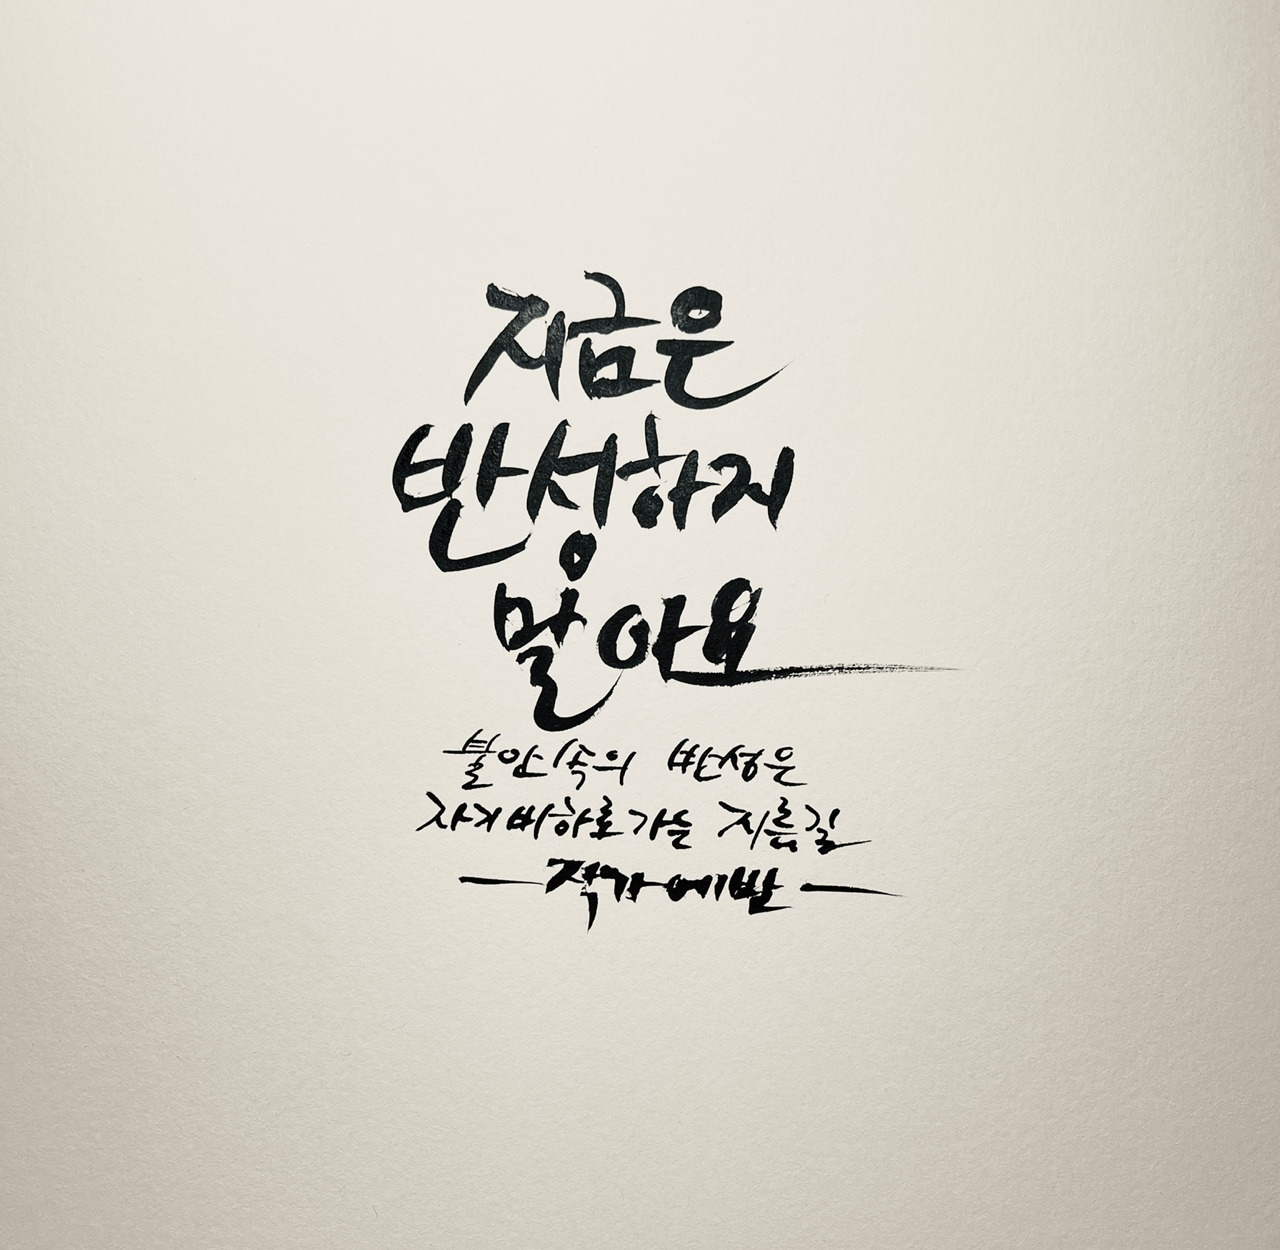 지금은
반성하지
말아요
불안 속의 반성은
자기 비하로 가는 지름길
작가 예반